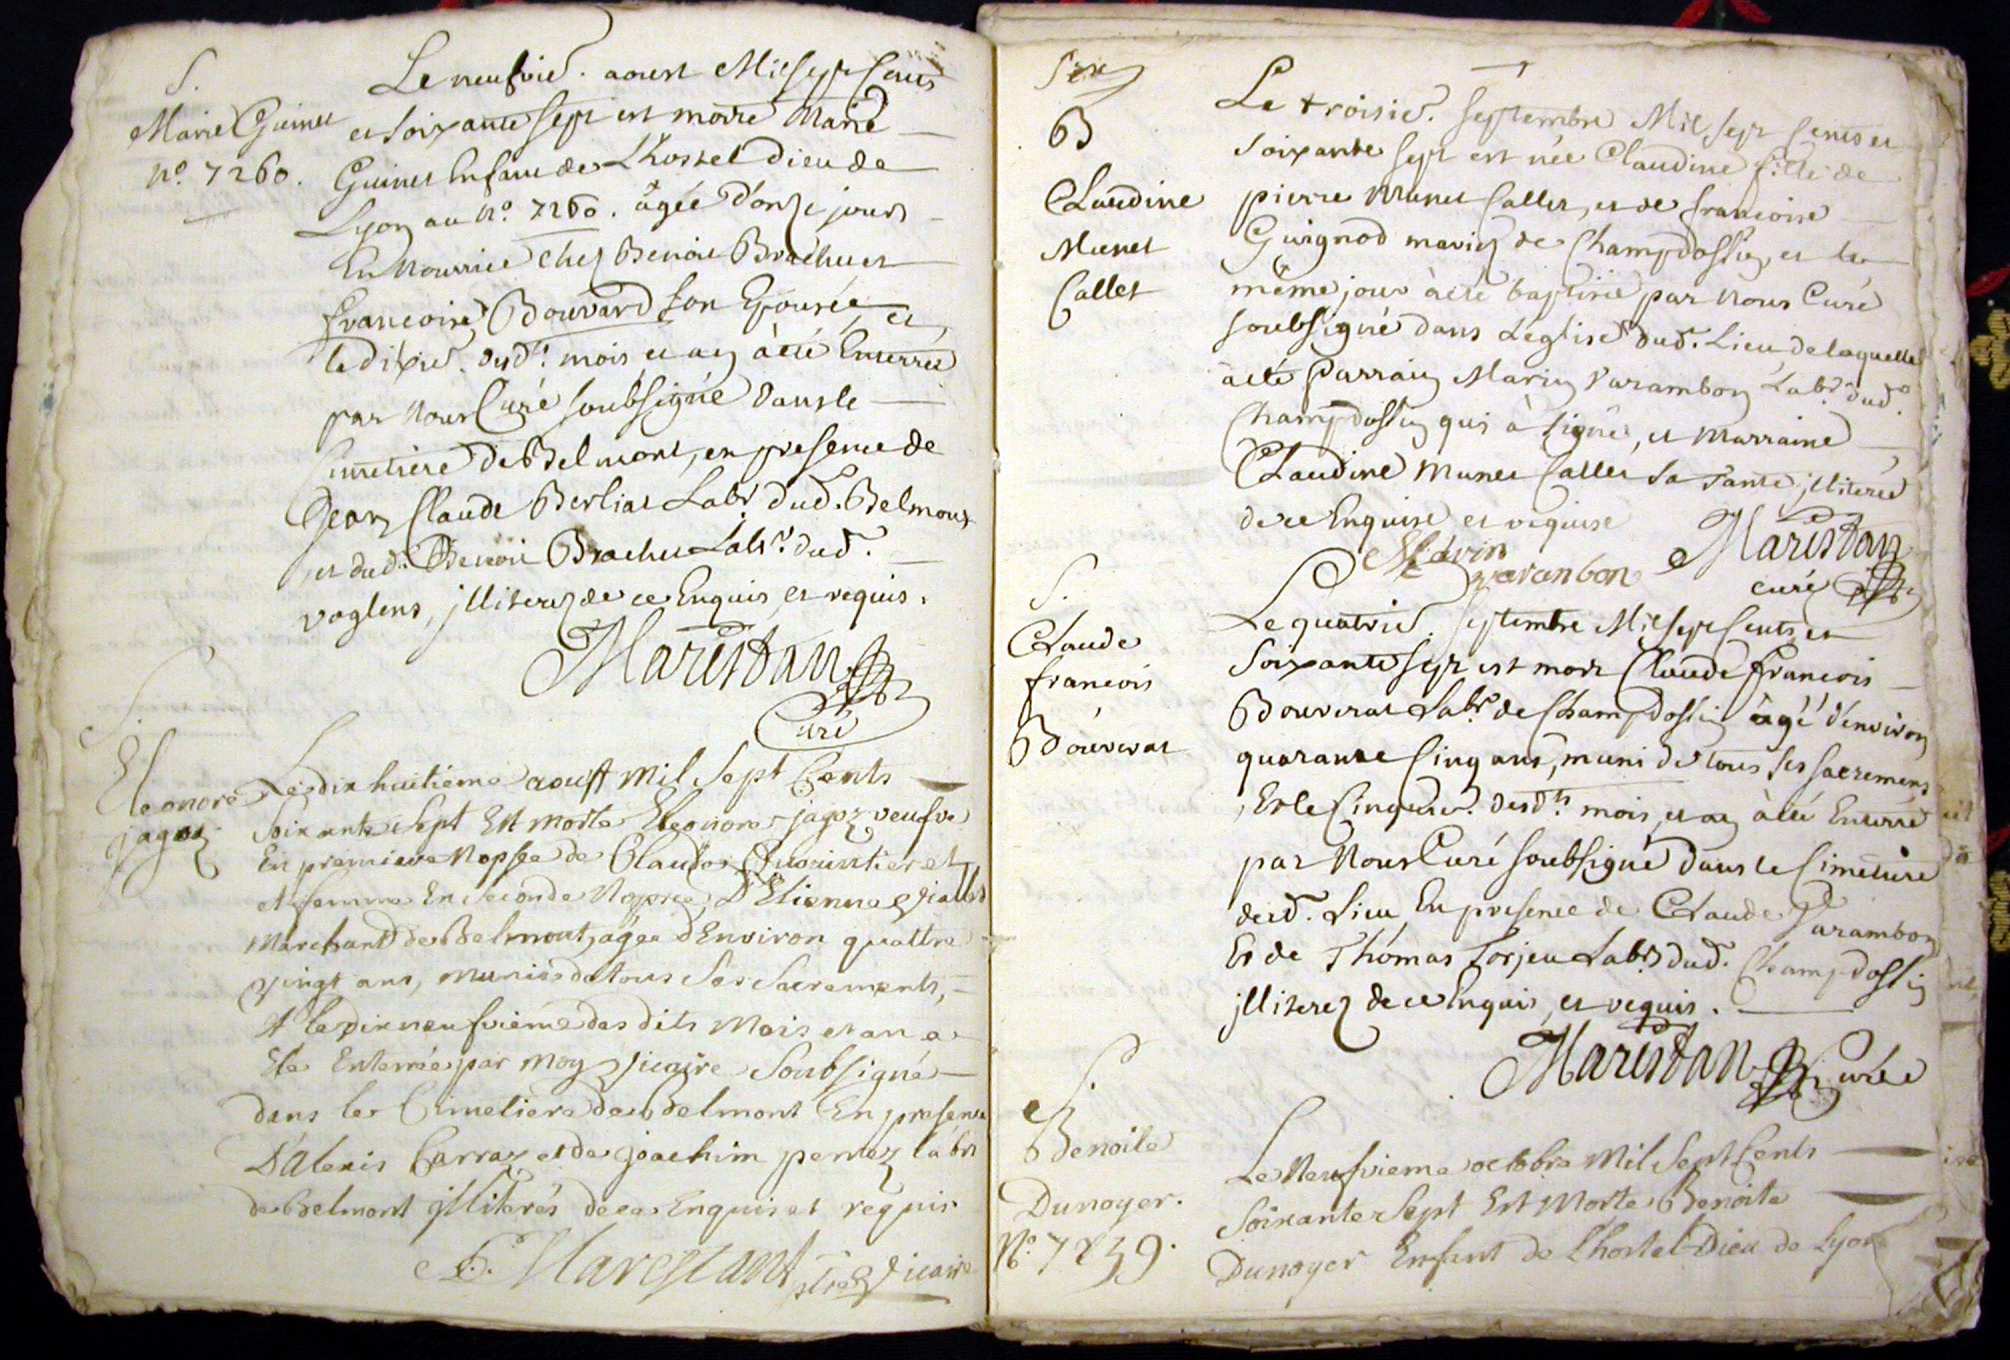 S.
Marie Guinet
n.º 7260.
Le neufvie. aoust Mil Sept Cents
et soixante sept est morte Marie
Guinet Enfant de L'hostel Dieu de
Lyon au n.º 7260. âgée d'onze jours
En Nourrice chez Benoit Brachet et
francoise Bouvard son Epousée, et
le dixie. dud.t mois et an à été Enterrée
par Nous Curé soubsigné dans le
Cimetiere de Belmont, en presence de
Jean Claude Berliat Lab.r dud. Belmont
et dud. Benoit Brachet Lab.r dud.
voglens, jlliterez de ce Enquis et requis.
Maristan
Curé
S.
Eleonore
jagoz
Le dix huitieme aoust Mil Sept Cents
Soixante Sept Est Morte Eleonore jagoz veufve
En premiere Nopsce de Claude et
et femme En Seconde Nopsce D'Etienne
Marchant de Belmont, agée d'Environ quattre
vingt ans, Munie de tous Ses Sacrements,
Et le dix neufvième des dits Mois et an a
Eté Enterrée par Moy Vicaire Soubsigné
dans le Cimetiere de Belmont En presence
D'Alexis Carraz et de joachim pernez labrs
de Belmont jlliterés de ce Enquis et requis
Marestant ptre Vicaire
B
Claudine
Munet
Callet
Le troisie. Septembre Mil Sept Cents et
soixante sept est née Claudine fille de
pierre Munet Callet, et de francoise
Guignod mariez de Champdossin, et le
même jour à été baptisée par Nous Curé
soubsigné dans L'eglise dud. Lieu, de laquelle
à été Parrain Marin Varambon Lab.r dud.
Champdossin qui à signé, et Marraine
Claudine Munet Callet sa Tante jlliterée
de ce Enquise et requise
Marin
varanbon
Maristan
curé
S.
Claude
francois
Bouverat
Le quatrie. Septembre Mil Sept Cents et
Soixante Sept est mort Claude francois
Bouverat Lab.r de Champdossin âgé d'environ
quarante Cinq ans, muni de tous ses sacremens
Et le Cinquie. desd.ts mois et an à été Enterré
par Nous Curé soubsigné dans le Cimetiere
dud. Lieu En presence de Claude Varambon
Et de Thomas Torjeu Labrs dud. Champdossin
jlliterez de ce Enquis, et requis.
Maristan Curé
S.
Benoite
Dunoyer.
N.º 7259.
Le Neufvieme octobre Mil Sept Cents
Soixante Sept Est Morte Benoite
Dunoyer Enfant de L'hostel Dieu de Lyon